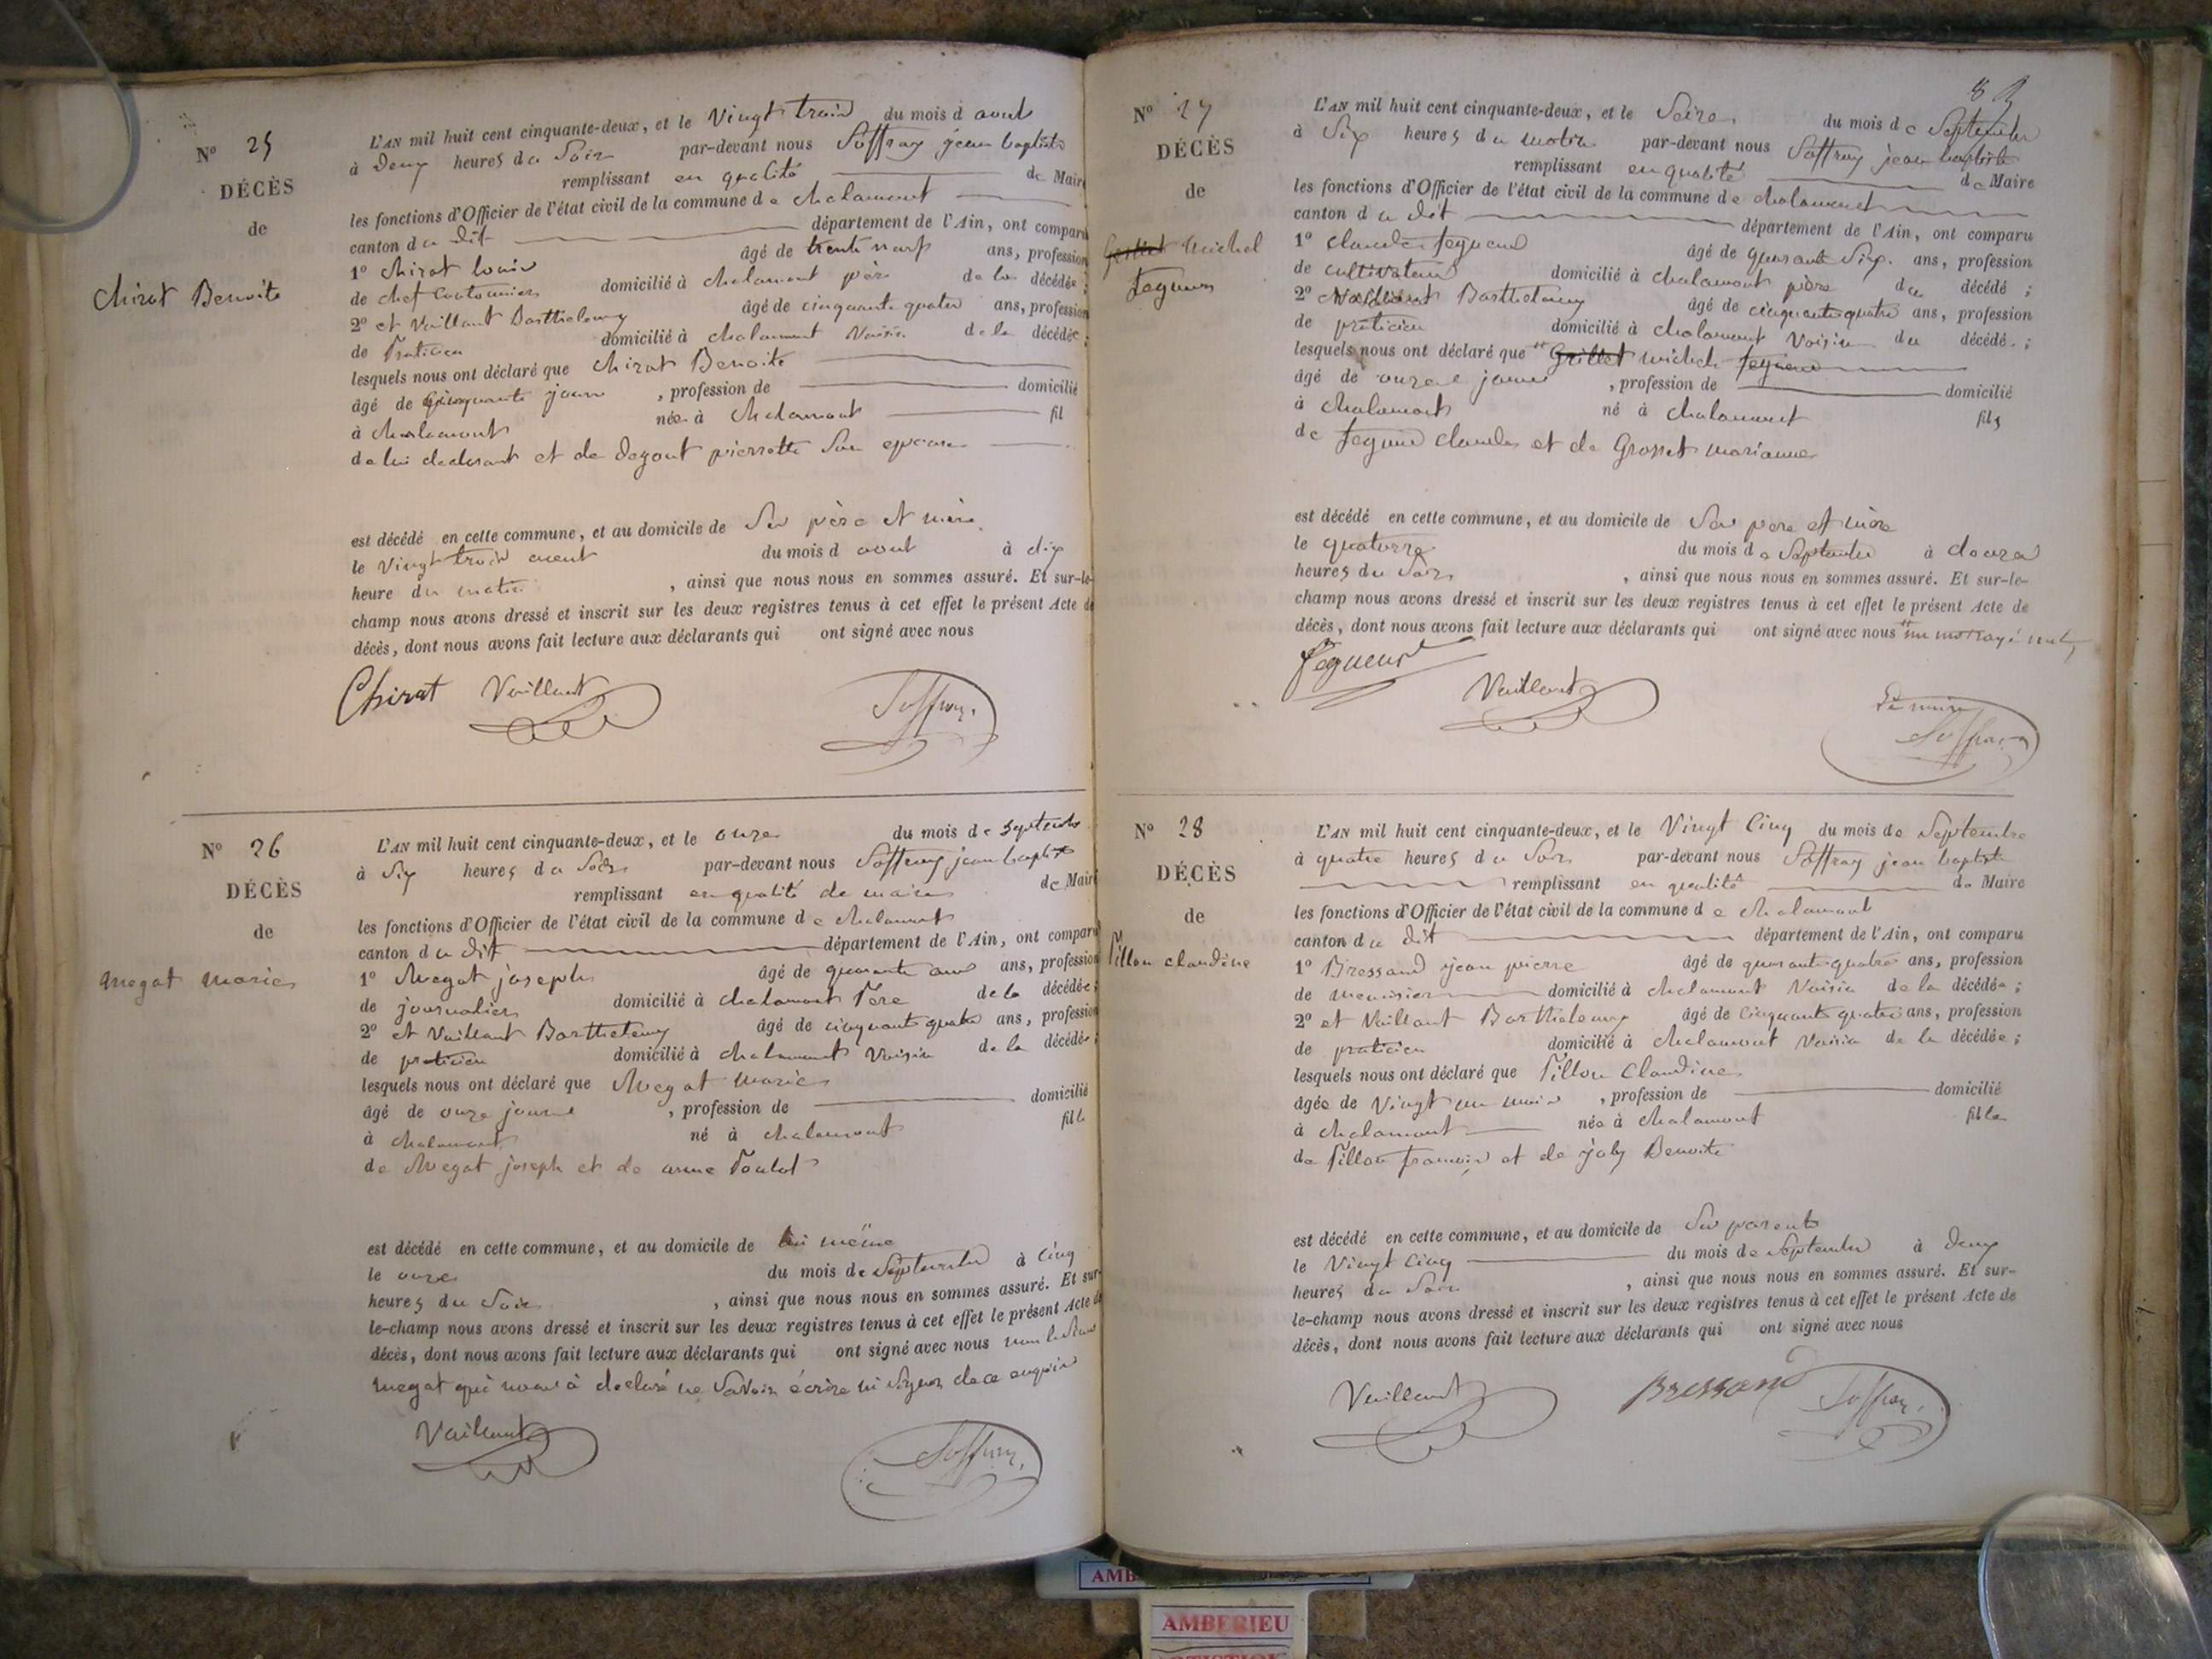 N° 25
DÉCÈS
de
Chirat Benoite
L'AN mil huit cent cinquante-deux, et le Vingt trois du mois d aout
à deux heures du Soir par-devant nous Soffray jean baptiste
remplissant en qualité de Maire
les fonctions d'Officier de l'état civil de la commune de chalamont
canton du dit département de l'Ain, ont comparu
1° Chirat louis âgé de trente neuf ans, profession
de chef Cantonnier domicilié à chalamont père de la décédée ;
2° et Vaillant Barthelemy âgé de cinquante quatre ans, profession
de Praticien domicilié à chalamont Voisin de la décédée ;
lesquels nous ont déclaré que Chirat Benoite
âgé de cinquante jours , profession de domicilié
à chalamont née à chalamont fil
de lui declarant et de degout pierrette Son epouse
est décédé en cette commune, et au domicile de Ses père et mère
le Vingt trois du mois d aout à dix
heure du matin , ainsi que nous nous en sommes assuré. Et sur-le-
champ nous avons dressé et inscrit sur les deux registres tenus à cet effet le présent Acte de
décès, dont nous avons fait lecture aux déclarants qui ont signé avec nous
Chirat Vaillant Soffray
N° 26
DÉCÈS
de
Megat Marie
L'AN mil huit cent cinquante-deux, et le onze du mois de Septembre
à Six heures du Soir par-devant nous Soffray jean baptiste
remplissant en qualité de maire de Maire
les fonctions d'Officier de l'état civil de la commune de chalamont
canton du dit département de l'Ain, ont comparu
1° Megat joseph âgé de quarante ans, profession
de journalier domicilié à chalamont Père de la décédée ;
2° et Vaillant Barthelemy âgé de cinquante quatre ans, profession
de praticien domicilié à chalamont Voisin de la décédée ;
lesquels nous ont déclaré que Megat Marie
âgé de onze jours , profession de domicilié
à chalamont né à chalamont fille
de Megat joseph et de anne Poulot
est décédé en cette commune, et au domicile de lui même
le onze du mois de Septembre à Cinq
heures du Soir , ainsi que nous nous en sommes assuré. Et sur-
le-champ nous avons dressé et inscrit sur les deux registres tenus à cet effet le présent Acte de
décès, dont nous avons fait lecture aux déclarants qui ont signé avec nous non le Sieur
megat qui nous à declaré ne Savoir écrire ni Signer de ce enquis
Vaillant Soffray
N° 27
DÉCÈS
de
Michel
Feguens
L'AN mil huit cent cinquante-deux, et le Seize du mois de Septembre
à Six heures du matin par-devant nous Soffray jean baptiste
remplissant en qualité de Maire
les fonctions d'Officier de l'état civil de la commune de chalamont
canton du dit département de l'Ain, ont comparu
1° claude âgé de quarante Six ans, profession
de cultivateur domicilié à chalamont père du décédé ;
2° Vaillant Barthelemy âgé de cinquante quatre ans, profession
de praticien domicilié à chalamont Voisin du décédé ;
lesquels nous ont déclaré que Grillet michel
âgé de onze jours , profession de domicilié
à chalamont né à chalamont fils
de claude et de Grosset marianne
est décédé en cette commune, et au domicile de Ses pere et mère
le quatorze du mois de Septembre à douze
heures du Soir , ainsi que nous nous en sommes assuré. Et sur-le-
champ nous avons dressé et inscrit sur les deux registres tenus à cet effet le présent Acte de
décès, dont nous avons fait lecture aux déclarants qui ont signé avec nous un mot rayé nul
Feguens Vaillant Le maire
Soffray
N° 28
DÉCÈS
de
Pillon claudine
L'AN mil huit cent cinquante-deux, et le Vingt Cinq du mois de Septembre
à quatre heures du Soir par-devant nous Soffray jean baptiste
remplissant en qualité de Maire
les fonctions d'Officier de l'état civil de la commune de chalamont
canton du dit département de l'Ain, ont comparu
1° Bressand jean pierre âgé de quarante quatre ans, profession
de menuisier domicilié à chalamont Voisin de la décédée ;
2° et Vaillant Barthelemy âgé de Cinquante quatre ans, profession
de praticien domicilié à chalamont Voisin de la décédée ;
lesquels nous ont déclaré que Pillon Claudine
âgée de Vingt un mois , profession de domicilié
à chalamont née à chalamont fille
de Pillon francois et de joly Benoite
est décédé en cette commune, et au domicile de Ses parents
le Vingt Cinq du mois de Septembre à deux
heures du Soir , ainsi que nous nous en sommes assuré. Et sur-
le-champ nous avons dressé et inscrit sur les deux registres tenus à cet effet le présent Acte de
décès, dont nous avons fait lecture aux déclarants qui ont signé avec nous
Vaillant Bressand Soffray
AMBERIEU